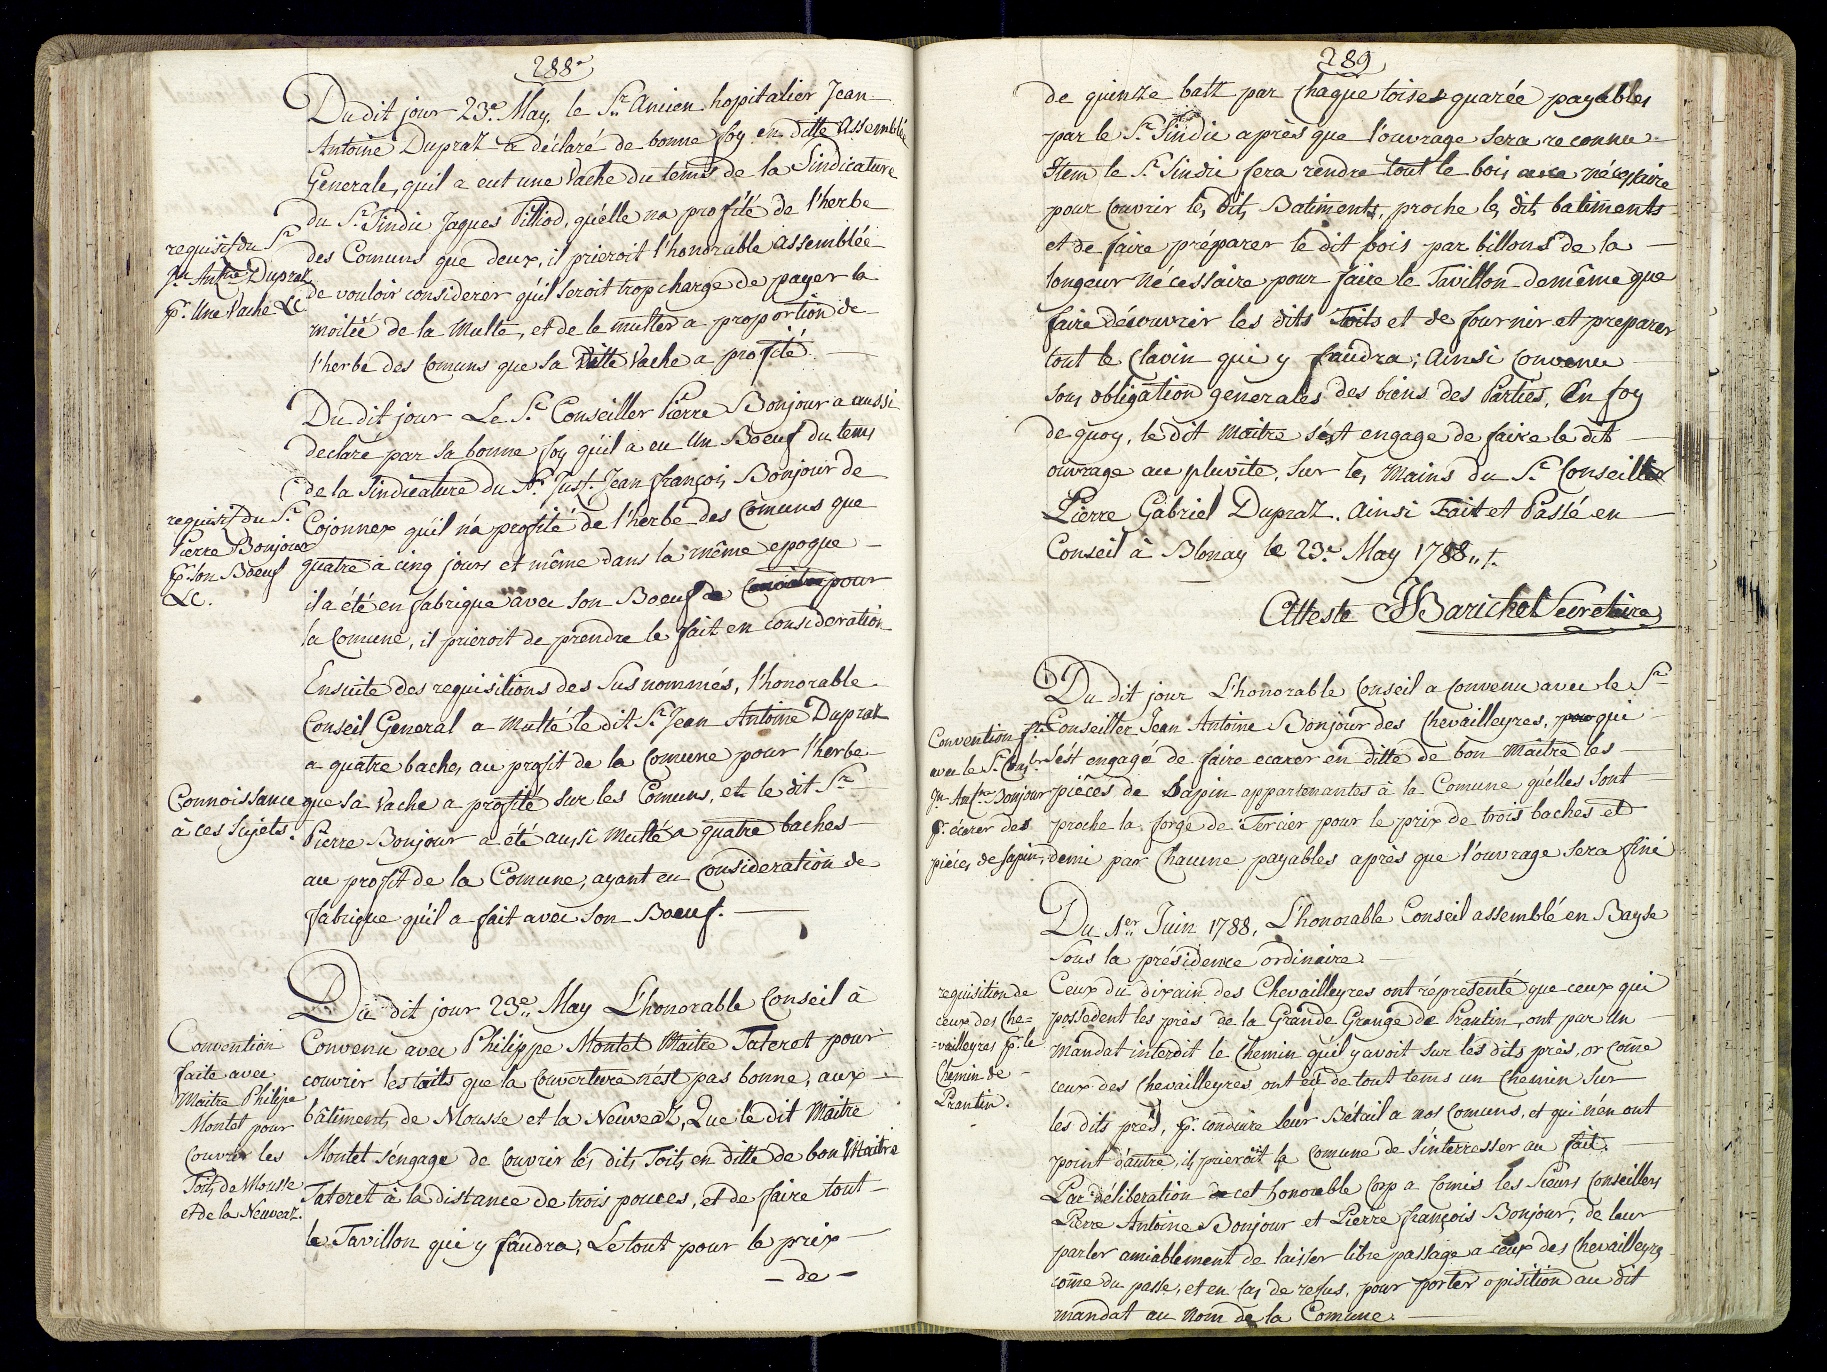 288.
Du dit jour 23.e May, le S.r Ancien hopitalier Jean
Antoine Dupraz a déclaré de bonne foy en ditte Assemblée
Generale, quil a eut une Vache du tems de la Sindicature
du S.r Sindic Jaques Pilliod, quélle na profité de l'herbe
requisit. du S.r
Jn Antne Dupraz
pr. Une Vache &c
des Comuns que deux, il prieroit l'honorable assemblée
de vouloir considerer quil seroit trop charge de payer la
moitié de la Multe, et de le multer a proportion de
l'herbe des Comuns que sa ditte Vache a profité.
Du dit jour Le S.r Conseiller Pierre Bonjour a aussi
declaré par sa bonne foy quil a eu Un Boeuf du tems
de la Sindicature du Sr. Just. Jean françois Bonjour de
requisit. du S.r
Pierre Bonjour
pr. son Boeuf
&c.
Cojonnex quil n'a profité de l'herbe des Comuns que
quatre à cinq jours et même dans la même epoque
il a été en fabrique avec son Boeuf pour
la Comune, il prieroit de prendre le fait en consideration
Ensuite des requisitions des Susnommés, l'honorable
Conseil General a Multé le dit S.r Jean Antoine Dupraz
a quatre baches au profit de la Comune pour l'herbe
Connoissance
à ces Sujets.
que sa Vache a profité sur les Comuns, et le dit S.r
Pierre Bonjour a été aussi Multé a quatre baches
au profit de la Comune, ayant eu Consideration de
fabrique quil a fait avec son Boeuf.
Du dit jour 23.e May L'honorable Conseil à
Convention
faite avec
Maitre Philipe
Montet pour
Couvrir les
Toits de Mousse
et de la Neuveaz.
Convenu avec Philippe Montet Maitre Tateret pour
couvrir les toits que la Couverture n'ést pas bonne, aux
bâtiments de Mousse et la Neuveaz, Que le dit Maitre
Montet s'éngage de Couvrir les dits Toits en ditte de bon Maitre
Tateret à la distance de trois pouces, et de faire tout
le Tavillon qui y faudra, Le tout pour le prix
- de -
289
de quinze batz par Chaque toises quarée payables
par le S.r Sindic après que l'ouvrage sera reconnu
Item le S.r Sindic fera rendre tout le bois nécessaire
pour Couvrir les dits Batiments, proche les dits batiments
et de faire préparer le dit bois par billons de la
longeur nécessaire pour faire le Tavillon demême que
faire découvrir les dits Toits et de fournir et preparer
tout le Clavin qui y faudra; ainsi Convenu
sous obligation generales des biens des Parties, En foy
de quoy, le dit Maitre s'ést engage de faire le dit
ouvrage au pluvite, sur les Mains du S.r Conseiller
Pierre Gabriel Dupraz. ainsi Fait et Passé en
Conseil à Blonay le 23.e May 1788.
Atteste JBarichet Secretaire
Du dit jour L'honorable Conseil a Convenu avec le S.r
Convention fte
avec le S.r Conslr
Jn Antne Bonjour
pr. écarer des
pièces de sapin
Conseiller Jean Antoine Bonjour des Chevailleyres, qui
s'ést engagé de faire ecarer en ditte de bon Maitre les
pièces de Sapin appartenantes à la Comune quélles sont
proche la forge de Tercier pour le prix de trois baches et
demi par Chacune payables après que l'ouvrage sera finé
Du 1er Juin 1788, L'honorable Conseil assemblé en Bayse
sous la présidence ordinaire.
requisition de
ceux des Che=
=vailleyres pr. le
Chemin de
Prantin.
Ceux du dixain des Chevailleyres ont répresenté que ceux qui
possedent les près de la Grande Grange de Prantin, ont par Un
mandat interdit le Chemin quil y avoit sur les dits près, or come
ceux des Chevailleyres ont eu de tout tems un Chemin sur
les dits prés, pr. conduire leur Bétail a nos Comuns, et qui n'en ont
point d'autre, ils prieroit la Comune de s'interresser au fait.
Par déliberation de cet honorable Corp a Comis les Sieurs Conseillers
Pierre Antoine Bonjour et Pierre françois Bonjour, de leur
parler amiablement de laisser libre passage a ceux des Chevailleyres
come du passe, et en cas de refus, pour porter opisition au dit
mandat au Nom de la Comune.